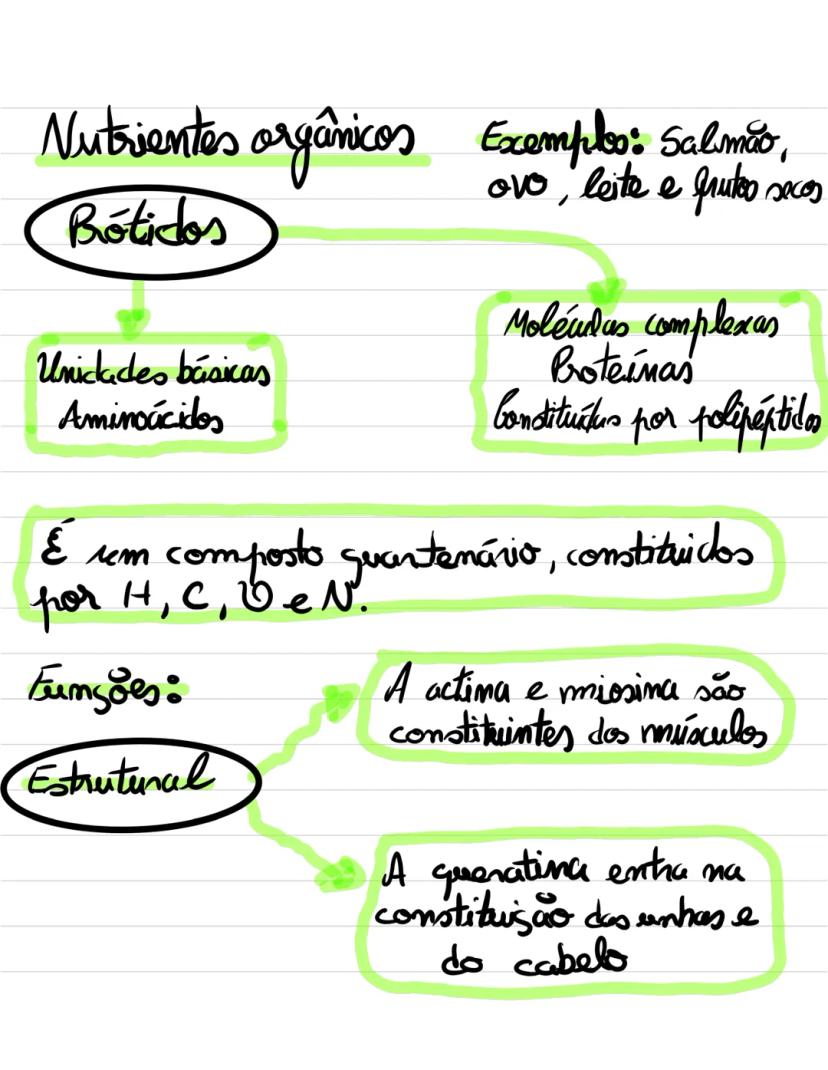 Nutrientes orgânicos
Exemplos: Salmão,
ovo, leite e frutos secos
Prótidos
Unidades básicas
Aminoácidos
Moléculas complexas
Proteínas
Constituídas por polipéptidos
É um composto quantenário, constituidos
por H, C, O e N.
Funções:
Estrutural
A actina e miosina são
constituintes dos músculos
A queratina entra na
constituição das unhas e
do cabelo